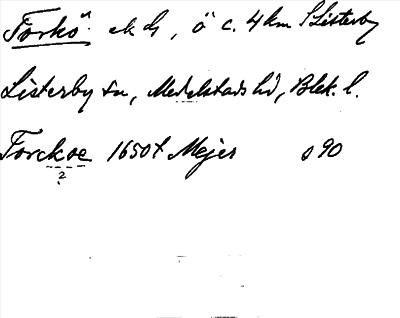 Torkö. ek bl, ö c. 4km S Listerby
Listerby sn, Medelstads hd, Blek. l.
Torckoe 1650t Mejer s 90
2